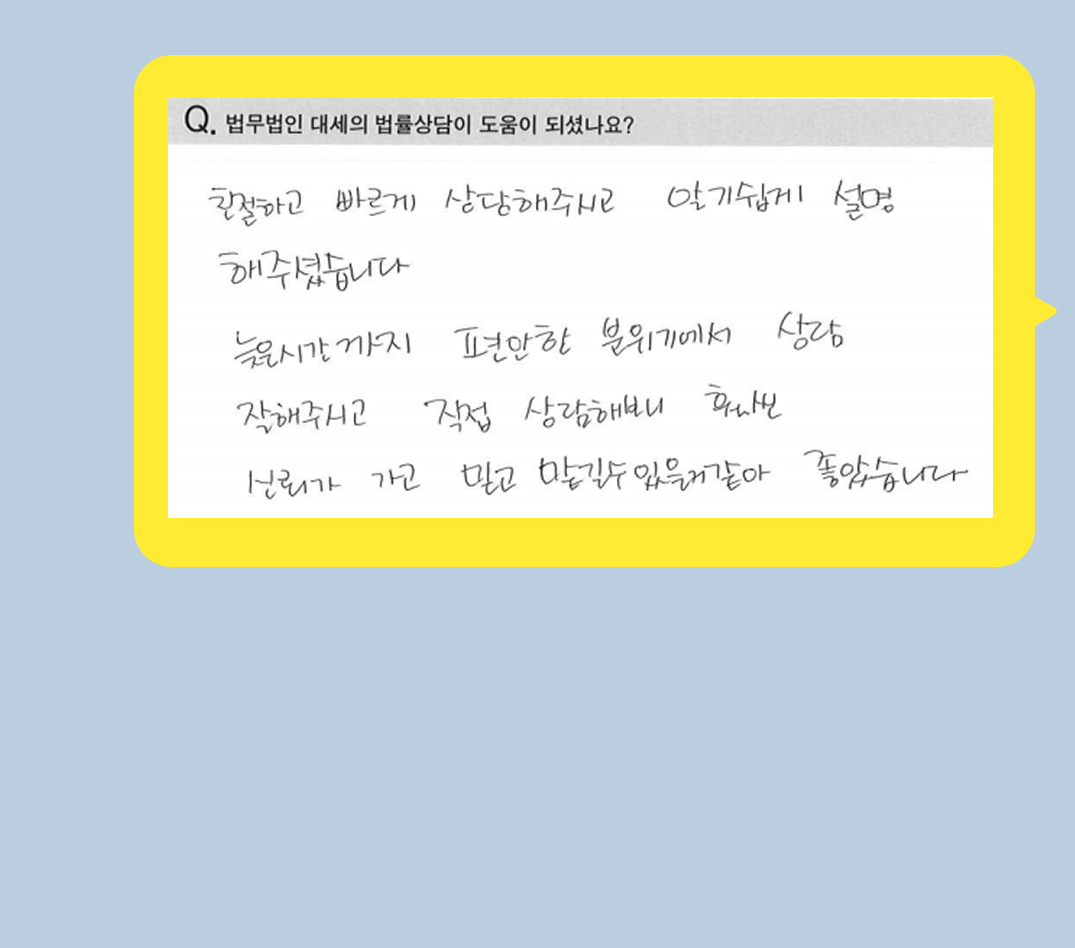 Q. 법무법인 대세의 법률상담이 도움이 되셨나요?
친절하고 빠르게 상담해주시고 알기쉽게 설명
해주셨습니다
늦은시간까지 편안한 분위기에서 상담
잘해주시고 직접 상담해보니 훨씬
신뢰가 가고 믿고 맡길수있을거같아 좋았습니다